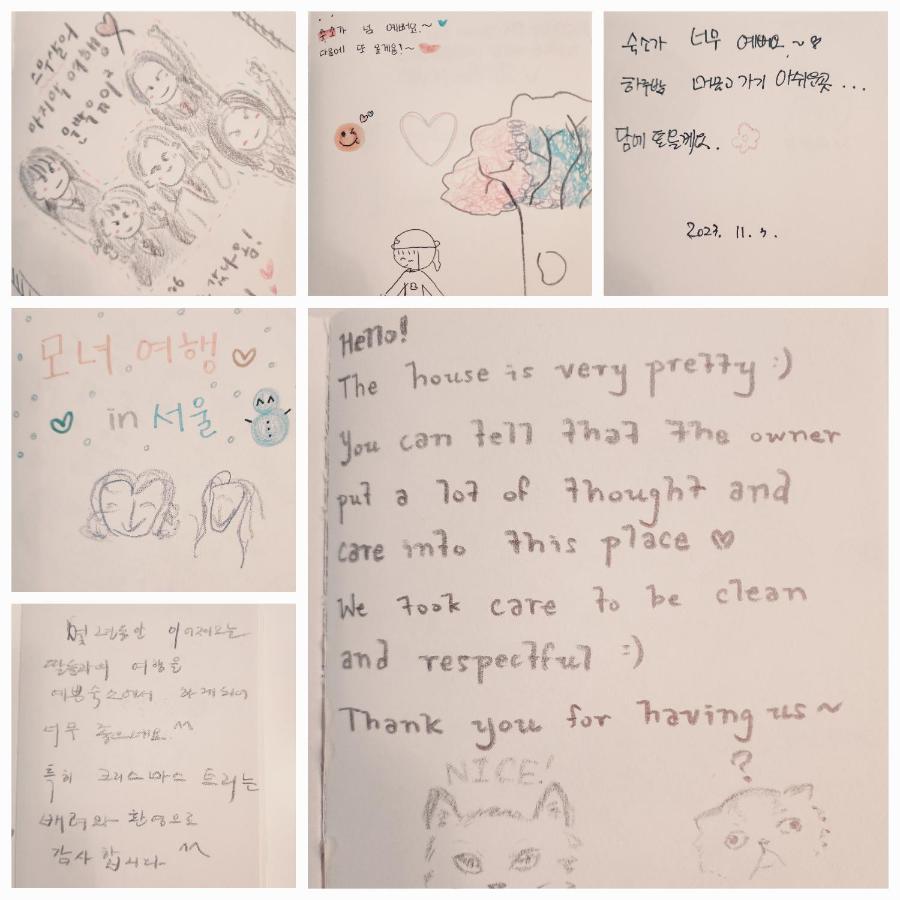 스무살의
마지막 여행
은박유이
잡나용!
숙소가 넘 예뻐요.~
다음에 또 올게용!~
숙소가 너무 예뻐요.~
하룻밤 머물고 가기 아쉬운곳...
담에 또 올께요.
2023. 11. 5.
모녀 여행
in 서울
몇 년동안 이어져오는
딸들과의 여행을
예쁜숙소에서 하게되어
너무 좋으네요. ^^
특히 크리스마스 트리는
배려와 환영으로
감사합니다 ^^
Hello!
The house is very pretty :)
You can tell that the owner
put a lot of thought and
care into this place ♡
We took care to be clean
and respectful :)
Thank you for having us~
NICE!
?